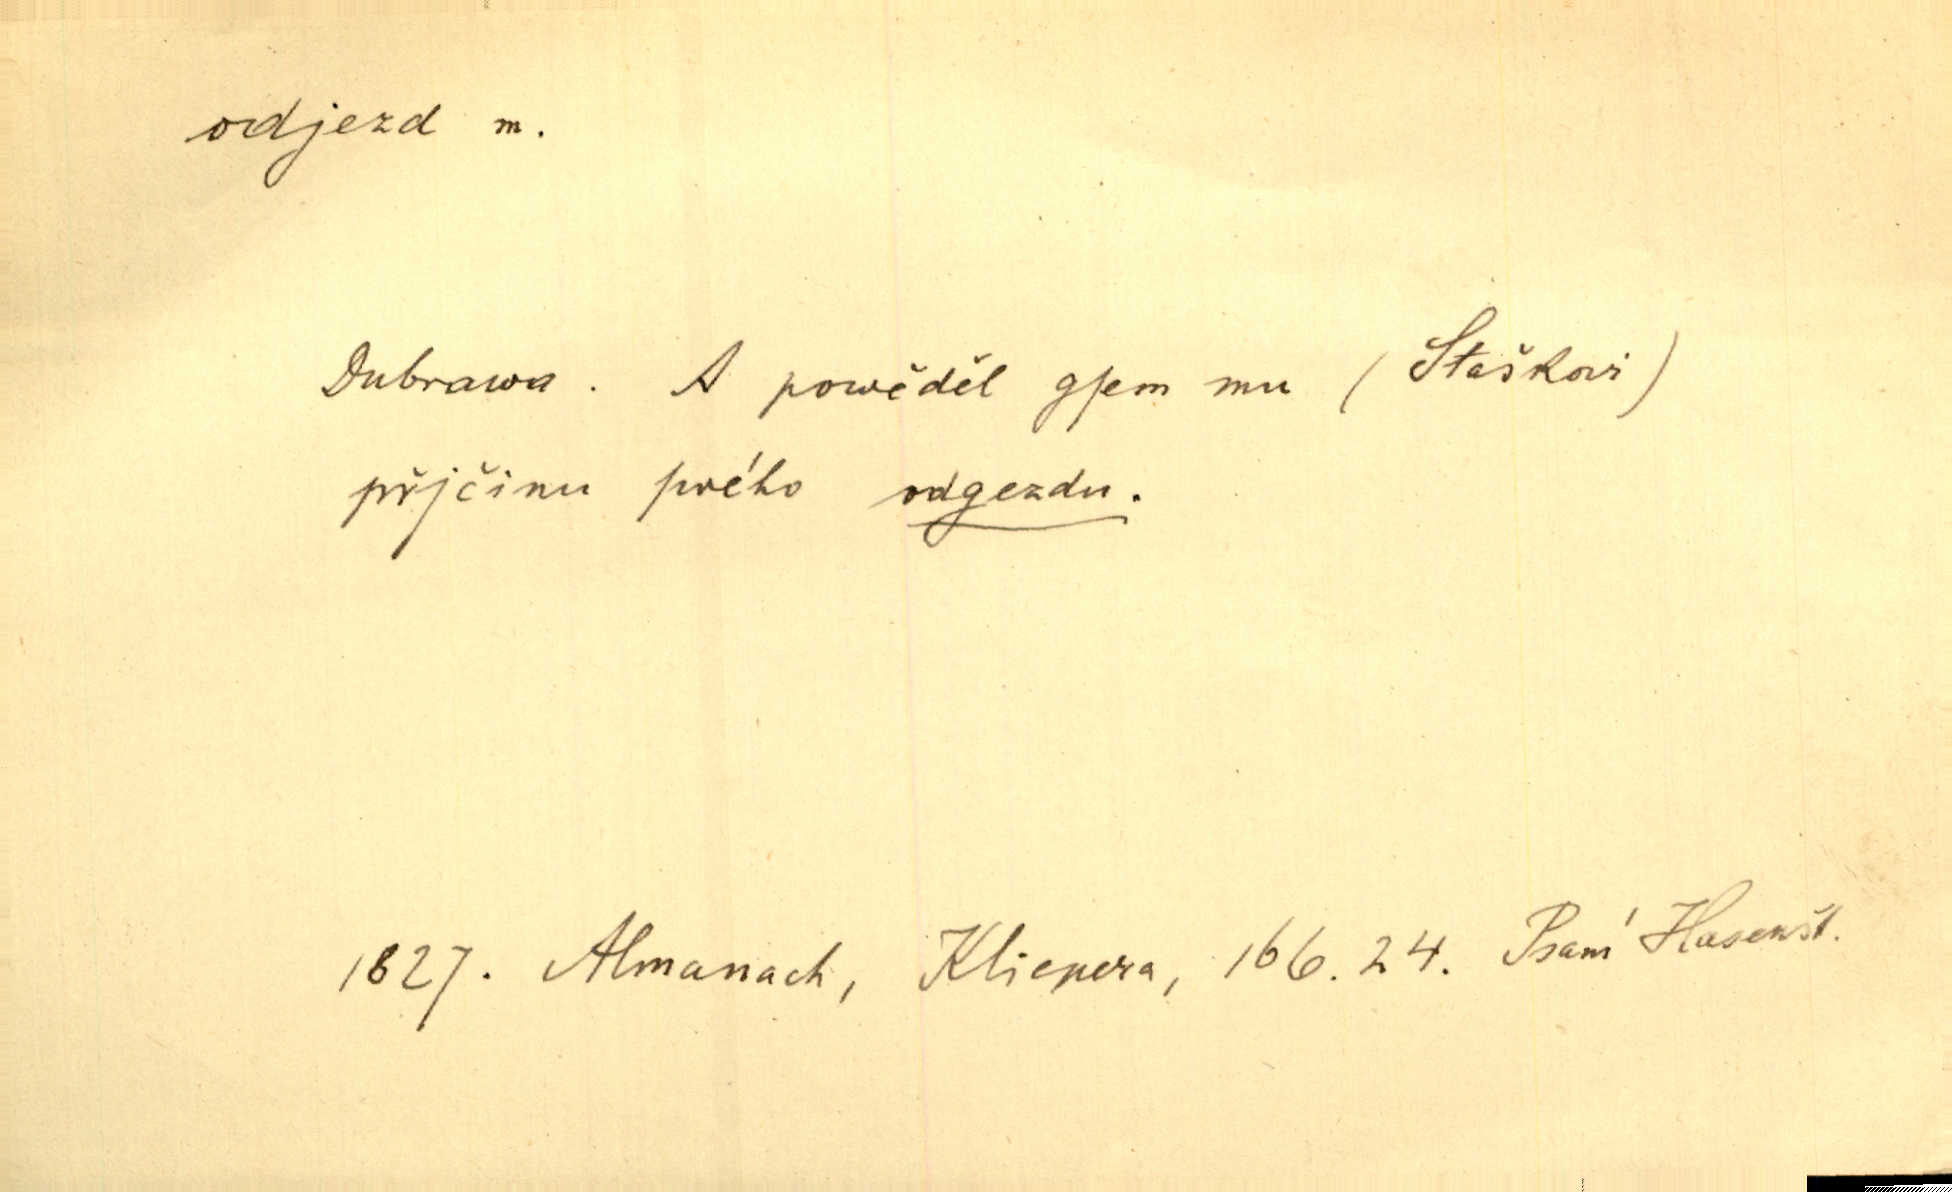 odjezd m.
Dubrawa. A powěděl gſem mu (Staškovi)
přjčinu ſwého odgezdu.
1827. Almanach, Klicpera, 166.24. Psaní Hasenšt.